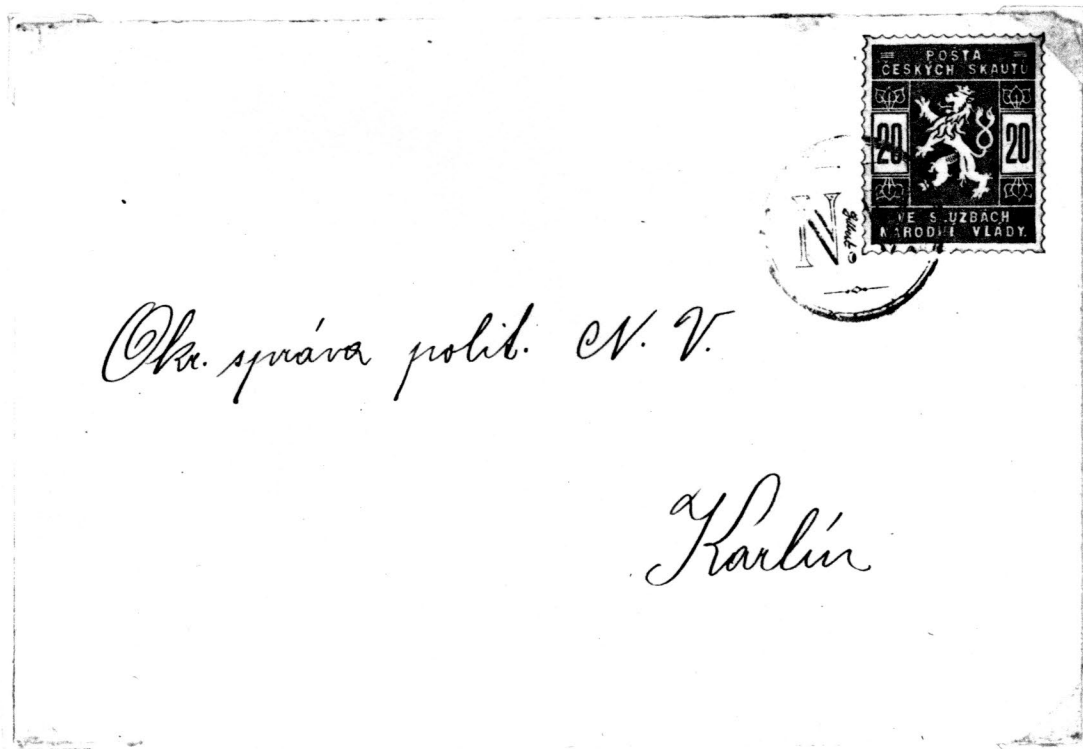 POŠTA
ČESKÝCH SKAUTŮ
20 20
VE SLUŽBÁCH
NÁRODNÍ VLÁDY.
N.
Okr. správa polit. N. V.
Karlín